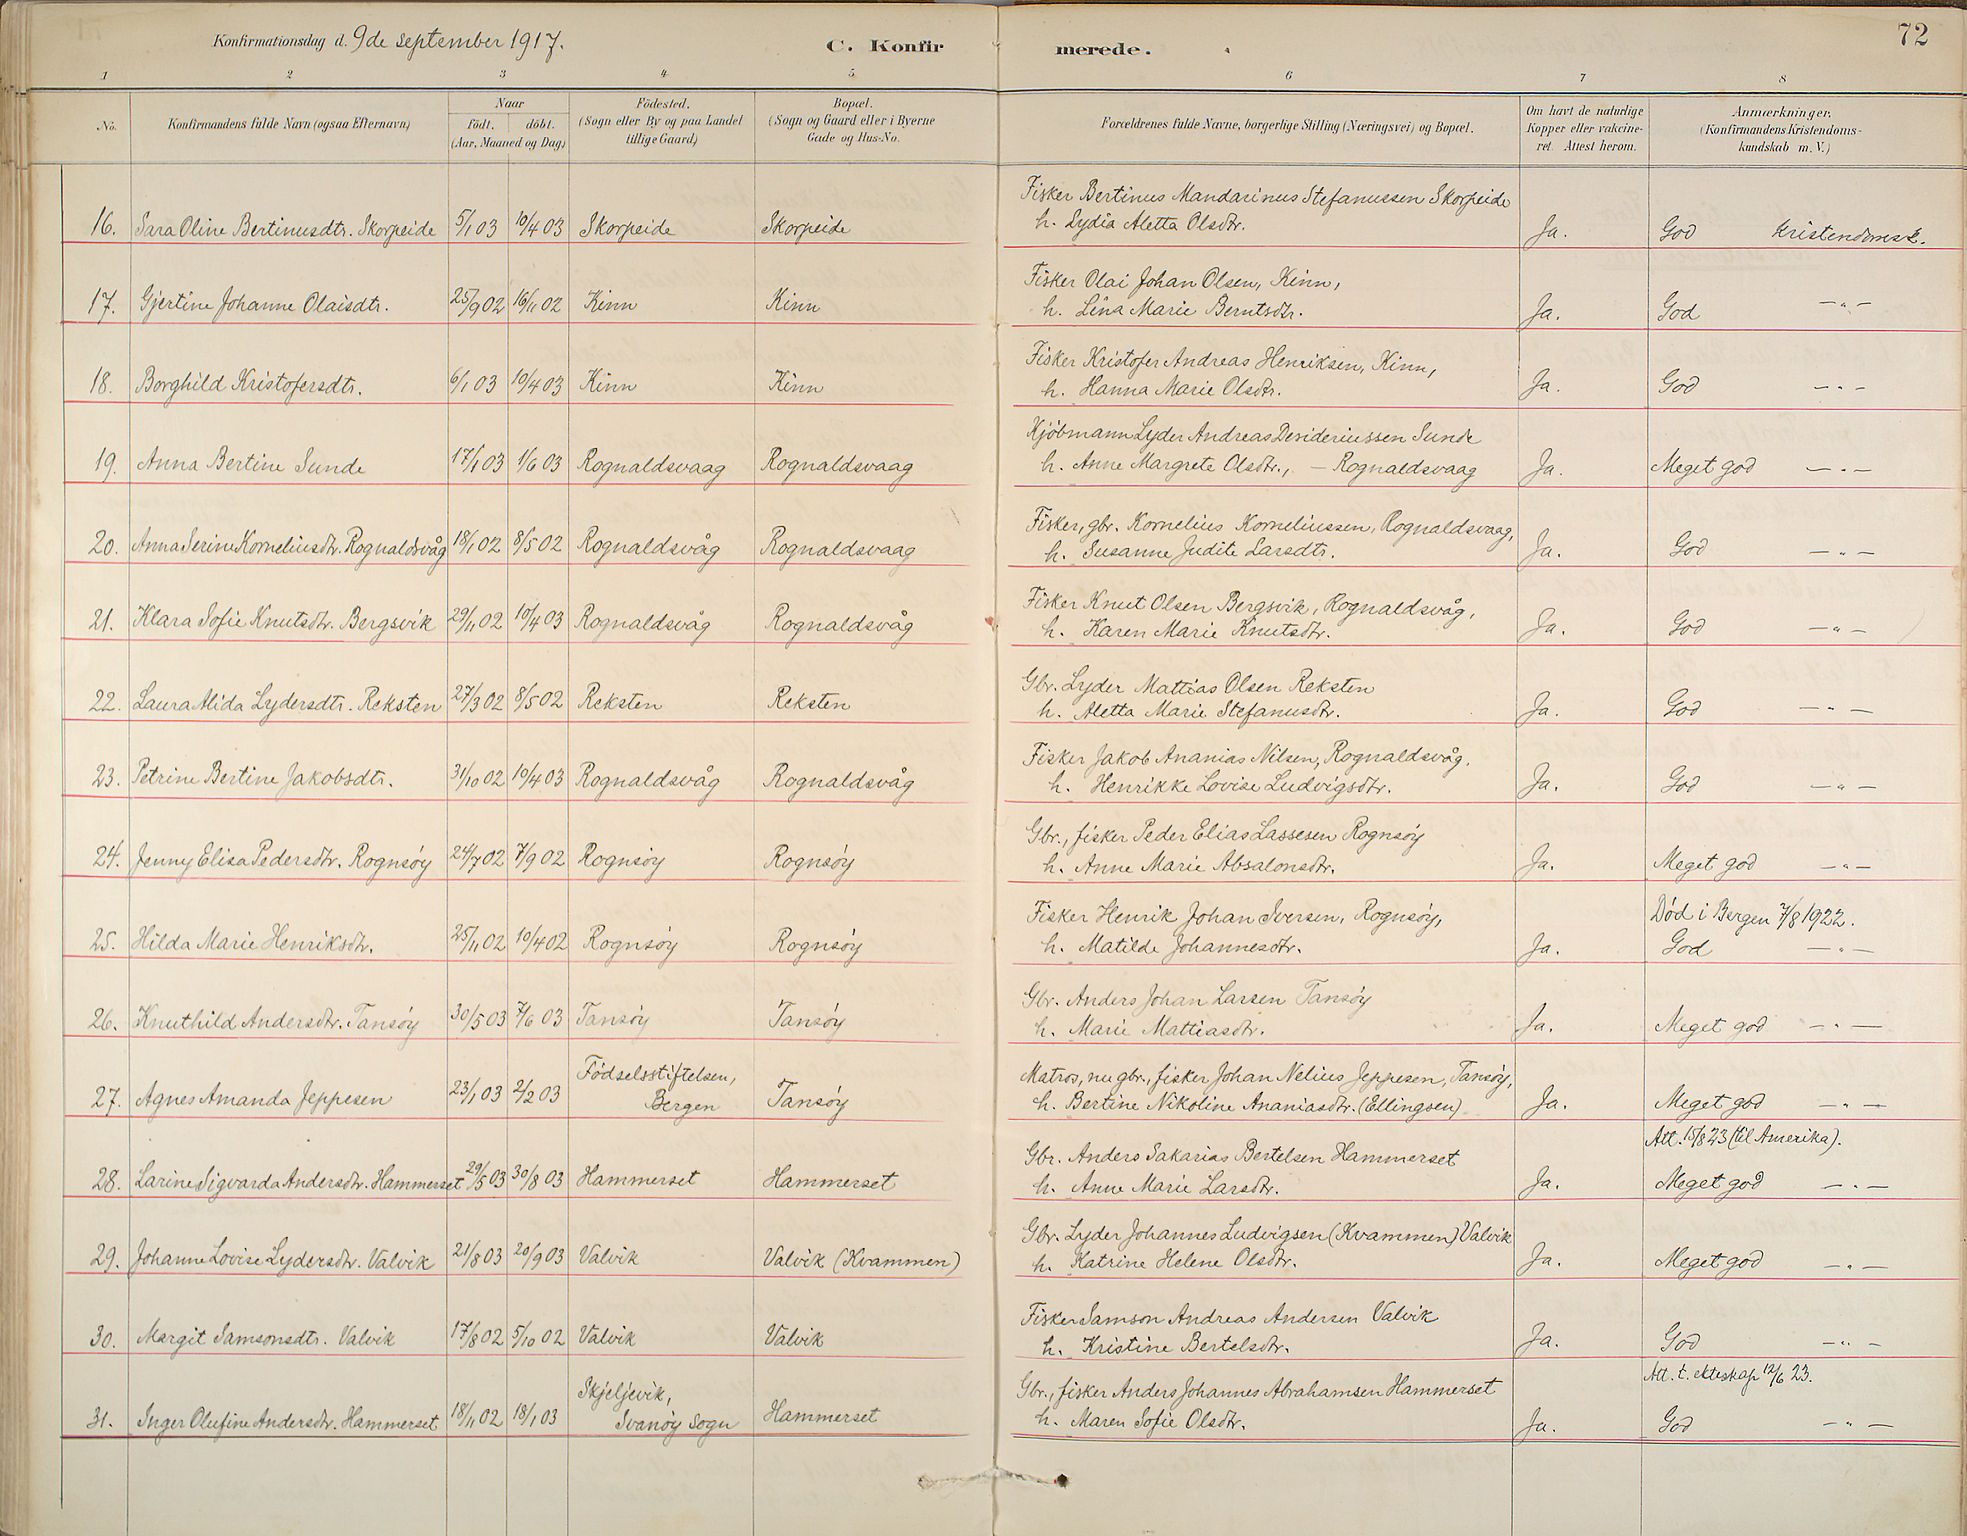 Konfirmationsdag d. 9de september 1917.
C. Konfir merede.
72
1 2 3 4 5 6 7 8
No.
Konfirmandens fulde Navn (ogsaa Efternavn)
Naar
født. døbt.
(Aar, Maaned og Dag)
Fødested.
(Sogn eller By og paa Landet
tillige Gaard)
Bopæl.
(Sogn og Gaard eller i Byerne
Gade og Hus-No.
Forældrenes fulde Navne, borgerlige Stilling (Næringsvei) og Bopæl.
Om havt de naturlige
Kopper eller vakcine-
ret. Attest herom.
Anmærkninger.
(Konfirmandens Kristendoms-
kundskab m. V.)
Fisker Bertinus Mandarinus Stefanussen Skorpeide
16. Sara Oline Bertinusdtr. Skorpeide 5/1 03 10/4 03 Skorpeide Skorpeide h. Lydia Aletta Olsdtr. Ja. God kristendomsk.
Fisker Olai Johan Olsen, Kinn,
17. Gjertine Johanne Olaisdtr. 25/9 02 16/11 02 Kinn Kinn h. Lina Marie Berntsdtr. Ja. God —"—
Fisker Kristofer Andreas Henriksen, Kinn,
18. Borghild Kristofersdtr. 6/1 03 10/4 03 Kinn Kinn h. Hanna Marie Olsdtr. Ja. God —"—
Kjøbmann Lyder Andreas Desideriussen Sunde
19. Anna Bertine Sunde 17/1 03 1/6 03 Rognaldsvaag Rognaldsvaag h. Anne Margrete Olsdtr., — Rognaldsvaag Ja. Meget god —"—
Fisker, gbr. Kornelius Korneliussen, Rognaldsvaag,
20. Anna Serine Korneliusdtr. Rognaldsvåg 18/1 02 8/5 02 Rognaldsvåg Rognaldsvaag h. Susanne Judite Larsdtr. Ja. God —"—
Fisker Knut Olsen Bergsvik, Rognaldsvåg,
21. Klara Sofie Knutsdtr. Bergsvik 29/11 02 10/4 03 Rognaldsvåg Rognaldsvåg h. Karen Marie Knutsdtr. Ja. God —"—
Gbr. Lyder Mattias Olsen Reksten
22. Laura Alida Lydersdtr. Reksten 27/3 02 8/5 02 Reksten Reksten h. Aletta Marie Stefanusdtr. Ja. God —"—
Fisker Jakob Ananias Nilsen, Rognaldsvåg,
23. Petrine Bertine Jakobsdtr. 31/10 02 10/4 03 Rognaldsvåg Rognaldsvåg h. Henrikke Lovise Ludvigsdtr. Ja. God —"—
Gbr., fisker Peder Elias Lassesen Rognsøy
24. Jenny Elisa Pedersdtr. Rognsøy 24/7 02 7/9 02 Rognsøy Rognsøy h. Anne Marie Absalonsdtr. Ja. Meget god —"—
Fisker Henrik Johan Iversen, Rognsøy, Død i Bergen 7/8 1922.
25. Hilda Marie Henriksdtr. 25/11 02 10/4 02 Rognsøy Rognsøy h. Matilde Johannesdtr. Ja. God —"—
Gbr. Anders Johan Larsen Tansøy
26. Knuthild Andersdtr. Tansøy 30/5 03 7/6 03 Tansøy Tansøy h. Marie Mattiasdtr. Ja. Meget god —"—
Fødselsstiftelsen, Matros, nu gbr., fisker Johan Nelius Jeppesen, Tansøy,
27. Agnes Amanda Jeppesen 23/1 03 2/2 03 Bergen Tansøy h. Bertine Nikoline Ananiasdtr. (Ellingsen) Ja. Meget god —"—
Gbr. Anders Sakarias Bertelsen Hammerset Att. 15/8 23 (til Amerika).
28. Larine Sigvarda Andersdtr. Hammerset 29/5 03 30/8 03 Hammerset Hammerset h. Anne Marie Larsdtr. Ja. Meget god —"—
Gbr. Lyder Johannes Ludvigsen (Kvammen) Valvik
29. Johanne Lovise Lydersdtr. Valvik 21/8 03 20/9 03 Valvik Valvik (Kvammen) h. Katrine Helene Olsdtr. Ja. Meget god —"—
Fisker Samson Andreas Andersen Valvik
30. Margit Samsonsdtr. Valvik 17/8 02 5/10 02 Valvik Valvik h. Kristine Bertelsdtr. Ja. God —"—
Skjeljevik, Gbr., fisker Anders Johannes Abrahamsen Hammerset Att. t. ekteskap 12/6 23.
31. Inger Olufine Andersdtr. Hammerset 18/11 02 18/1 03 Svanøy sogn Hammerset h. Maren Sofie Olsdtr. Ja. God —"—